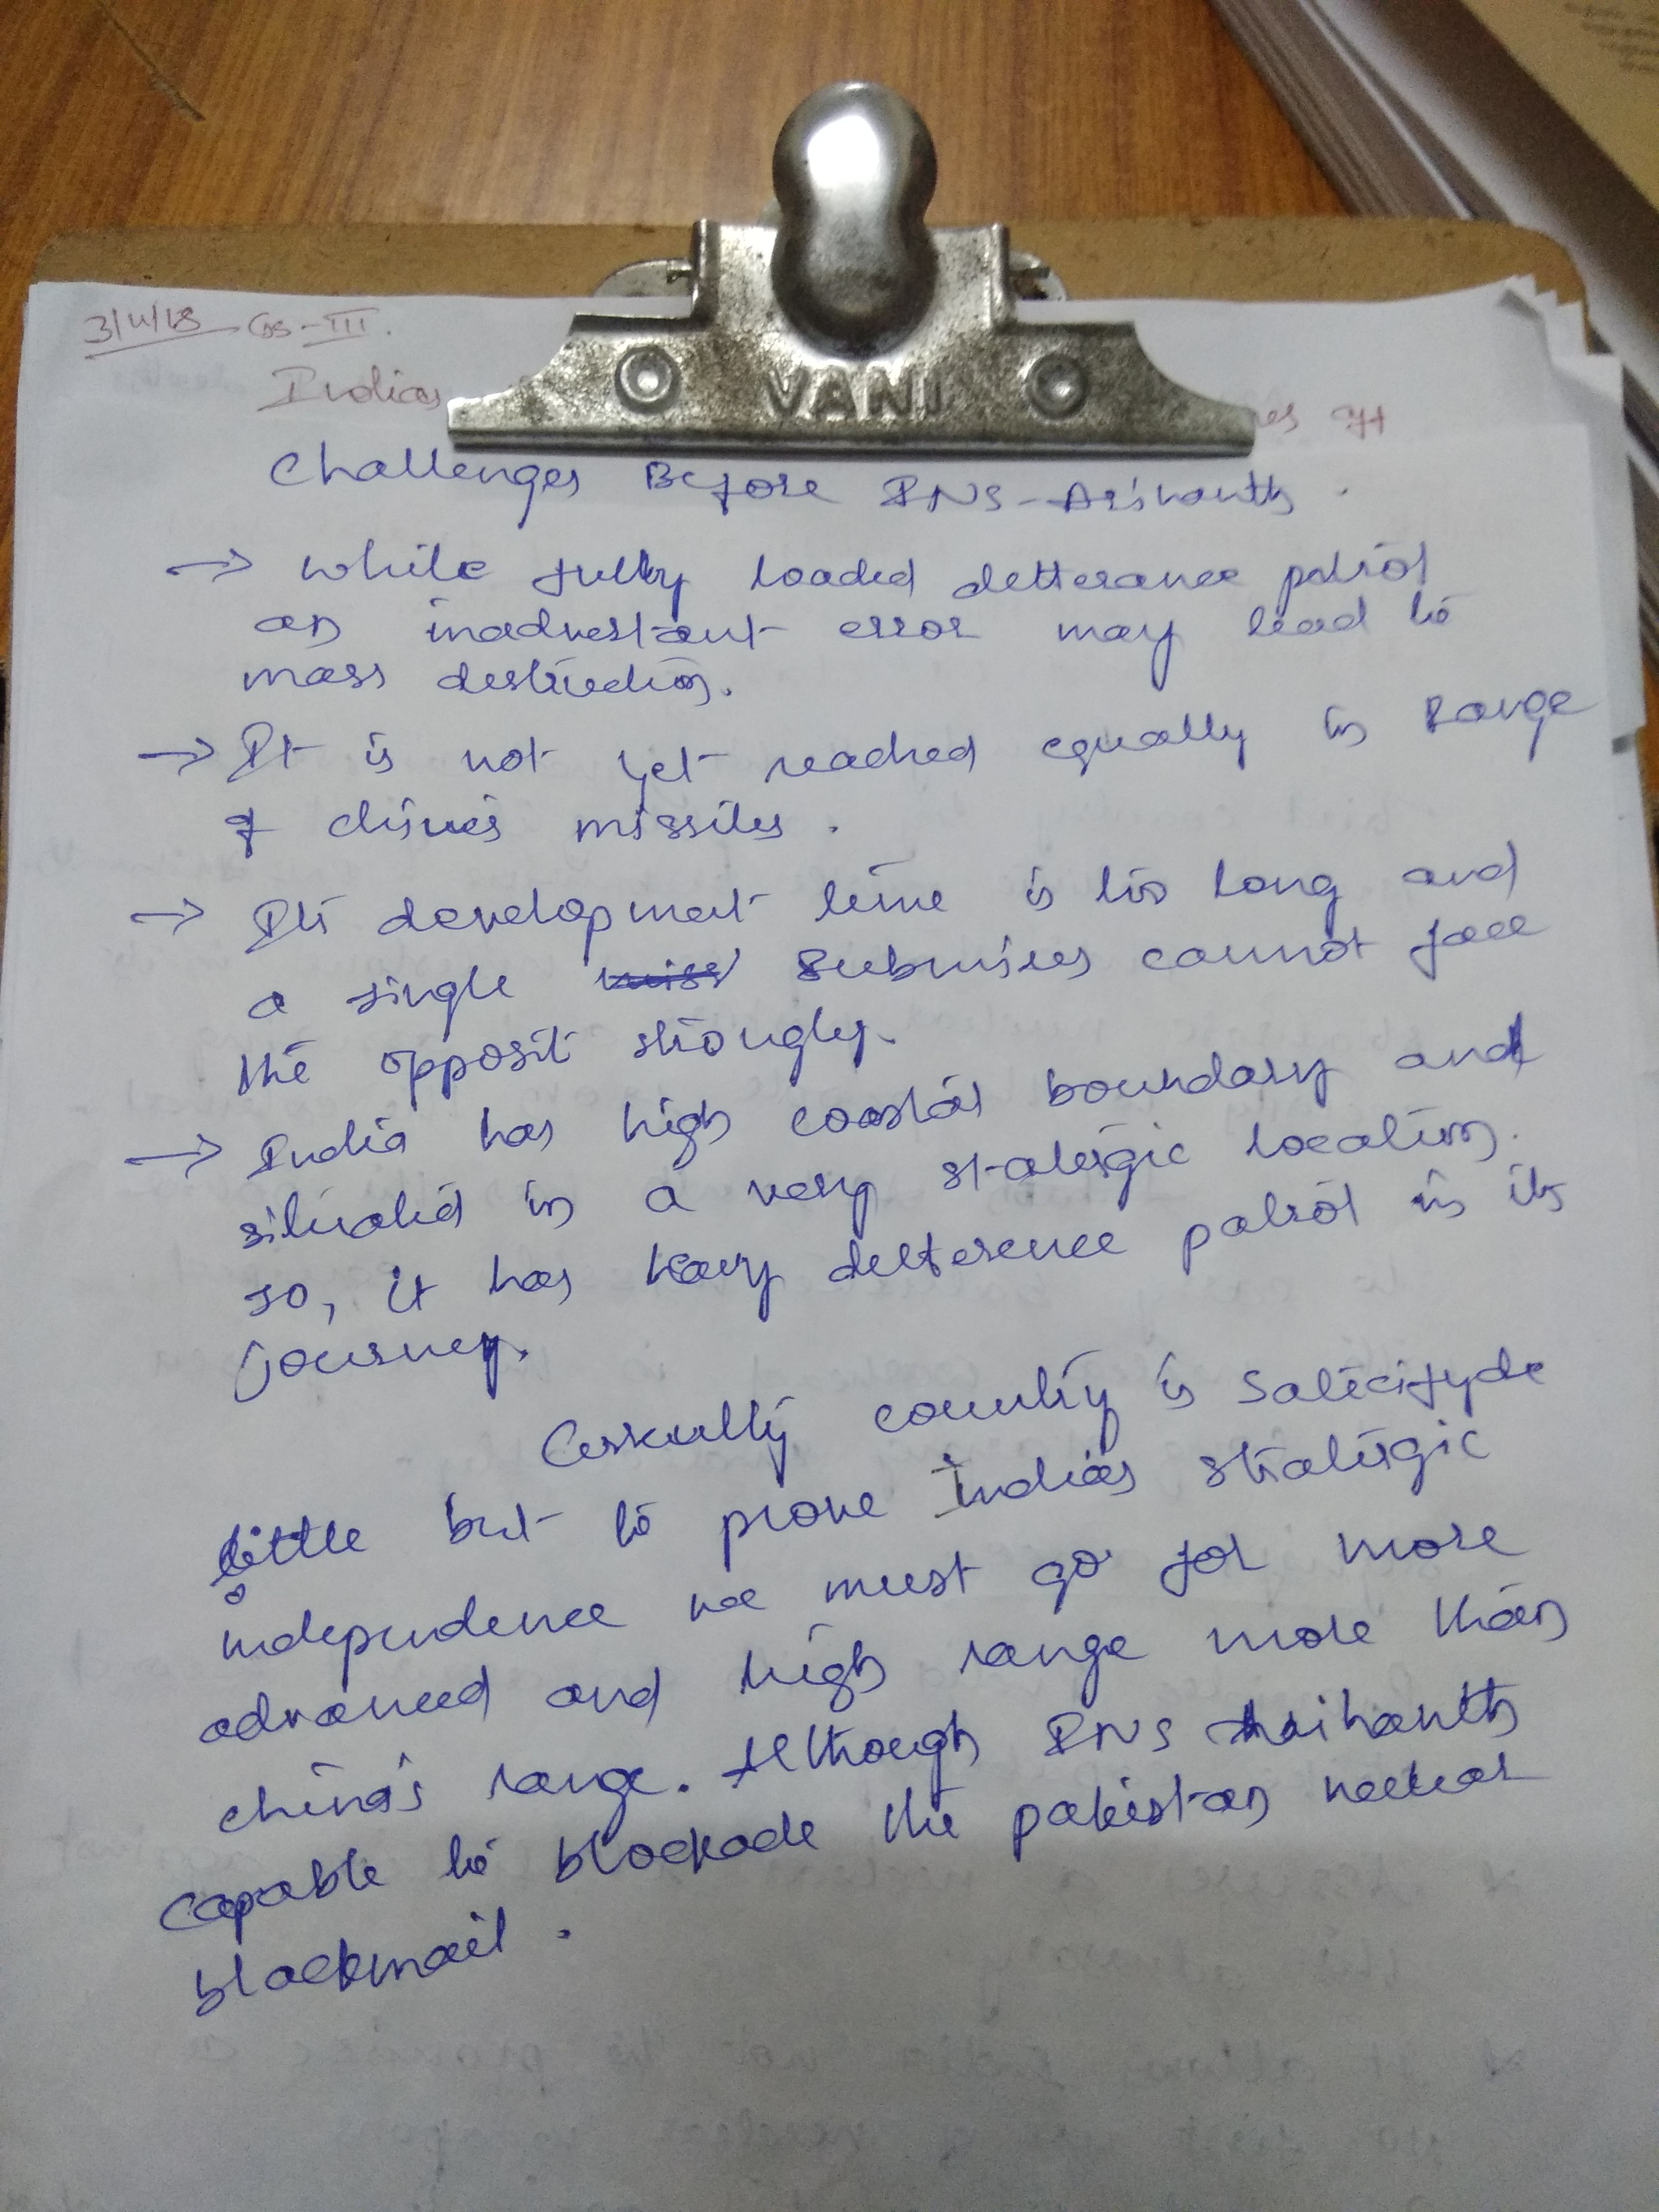 GS-III.
VANI
Indias
Challenges Before INS-Arihanth.
→ while fully loaded detterance patrol
an inadvertant error may lead to
mass destruction.
→ It is not yet reached equally in Range
of chines missiles.
→ Its development time is too long and
a single submires cannot face
the opposit strongly.
→ India has high coastal boundary and
situated in a very statergic location.
so, it has heavy detterence patrol in its
journey.
country is
little but to prove Indias stratergic
independence we must go for more
advanced and high range more than
china's range. Although INS Arihanth
capable to blockade the pakistan
blackmail.